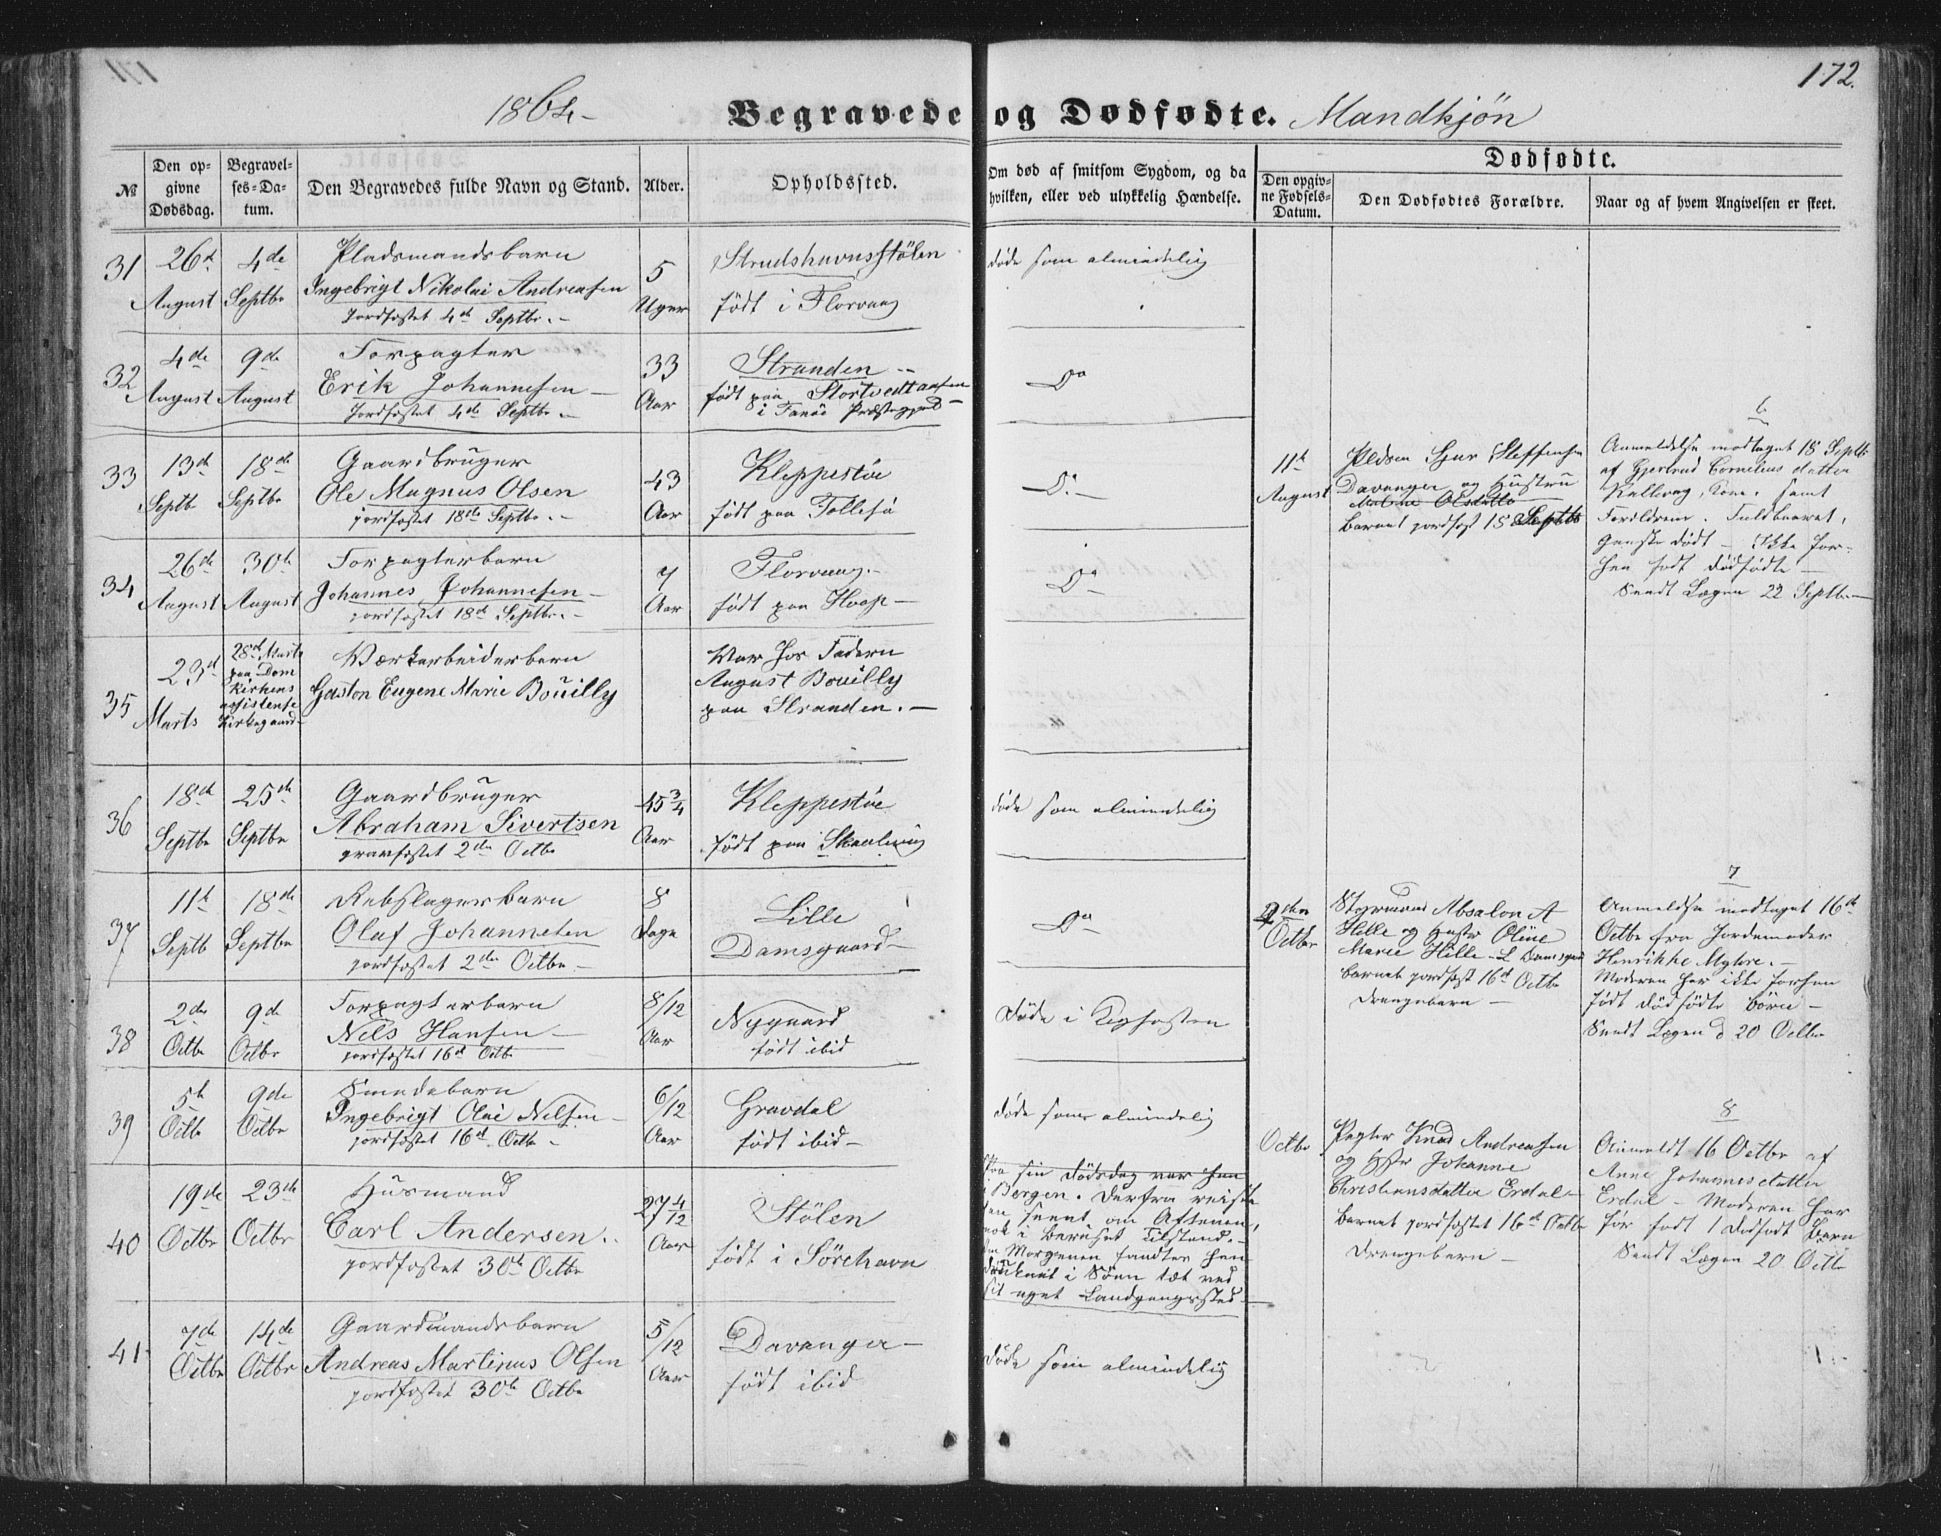 171
172.
1864 Begravede og Dødfødte. Mandkjøn
№
Den op-
givne
Dødsdag.
Begravel-
ses-Da-
tum.
Den Begravedes fulde Navn og Stand.
Alder.
Opholdssted.
Om død af smitsom Sygdom, og da
hvilken, eller ved ulykkelig Hændelse.
Dødfødte.
Den opgiv-
ne Fødsels-
Datum.
Den Dødfødtes Forældre.
Naar og af hvem Angivelsen er skeet.
31
26d
August
4de
Septbr
Pladsmandsbarn
Ingebrigt Nikolai Andreasen
Jordfæstet 4de Septbr. -
5
Uger
Strudshavnsstølen
født i Florvaag
døde som almindelig
32
4de
August
9de
August
Forpagter
Erik Johannesen -
Jordfæstet 4de Septbr. -
33
Aar
Stranden
født paa Stortvedtaasen
i Fanøe Præstegjeld -
Do
33
13de
Septb
18de
Septbr
Gaardbruger
Ole Magnus Olsen
jordfæstet 18de Septbr. -
43
Aar
Kleppestøe
født paa Follesø
Do -
34
26de
August
30te
August
Forpagterbarn
Johannes Johannesen -
jordfæstet 18de Septbr. -
7
Aar
Florvaag -
født paa Hoop -
Do
35
23d
Marts
28de Marts
paa Dom
kirkens
assistents
kirkegaard -
Værkarbeiderbarn
Gaston Eugene Marie Bouilly
Var hos Faderen
August Bouilly
paa Stranden. -
36
18de
Septbr
25de
Septbr
Gaardbruger
Abraham Sivertsen
gravfæstet 2den Octbr
45 3/4
Aar
Kleppestøe
født paa Skaalevig
døde som almindelig
37
11te
Septb
18de
Septbr
Rebslagerbarn
Olaf Johannesen
jordfæstet 2den Octbr -
8
Dage
Lille
Damsgaard -
Do -
38
2den
Octbr
9de
Octbr
Forpagterbarn
Nils Hansen -
jordfæstet 16de Octbr
8/12
Aar
Nygaard
født ibid
Døde i Kighosten
39
5te
Octbr
9de
Octbr
Smedebarn
Ingebrigt Olai Nilsen -
jordfæstet 16de Octbr -
6/12
Aar
Gravdal
født ibid -
døde som almindelig
40
19de
Octbr
23de
Octbr
Husmand
Carl Andersen. -
jordfæstet 30te Octbr
27 4/12
Aar
Stölen
født i Sörehavn
Paa sin Dödsdag var han
i Bergen. Derfra reiste
han seent om Aftenen,
nok i beruset Tilstand. -
om Morgenen fandtes han
druknet i Söen tæt ved
sit eget Landgangssted -
41
7de
Octbr
14de
Octbr
Gaardmandsbarn
Andreas Martinus Olsen
jordfæstet 30te Octbr
5/12
Aar
Davanger -
født ibid
døde som almindelig
6
11te
August
Pldsm Sjur Steffensen
Davanger og Hustru
Malene Olsdatter
barnet jordfæst 18 Septbr
Anmeldelse modtaget 18 Septbr
af Gjertrud Cornelius datter
Kallevag, Kone. samt
Forældrene. Fuldbaaret,
ganske dødt - Ikke for-
hen født dødfødte -
Sendt Lægen 22 Septbr -
7
2den
Octbr
Styrmand Absalon A
Hille og Hustru Oline
Marie Hille - L Damsgaard
barnet jordfæst 16de Octbr
Drengebarn -
Anmeldelse modtaget 16de
Octbr fra Jordemoder
Henrikke Myhre. -
Moderen har ikke forhen
født dødfødte börn -
Sendt Lægen d 20 Octbr
8
Octbr
Pagter Knud Andreassen
og Hstr Johanne
Christiansdatter Erdal -
barnet jordfæstet 16de Octbr
Drengebarn -
Anmeldt 16 Octbr af
Anne Johannesdatter
Erdal - Moderen har
før født 1 dødfødt Barn
Sendt Lægen 20 Octbr